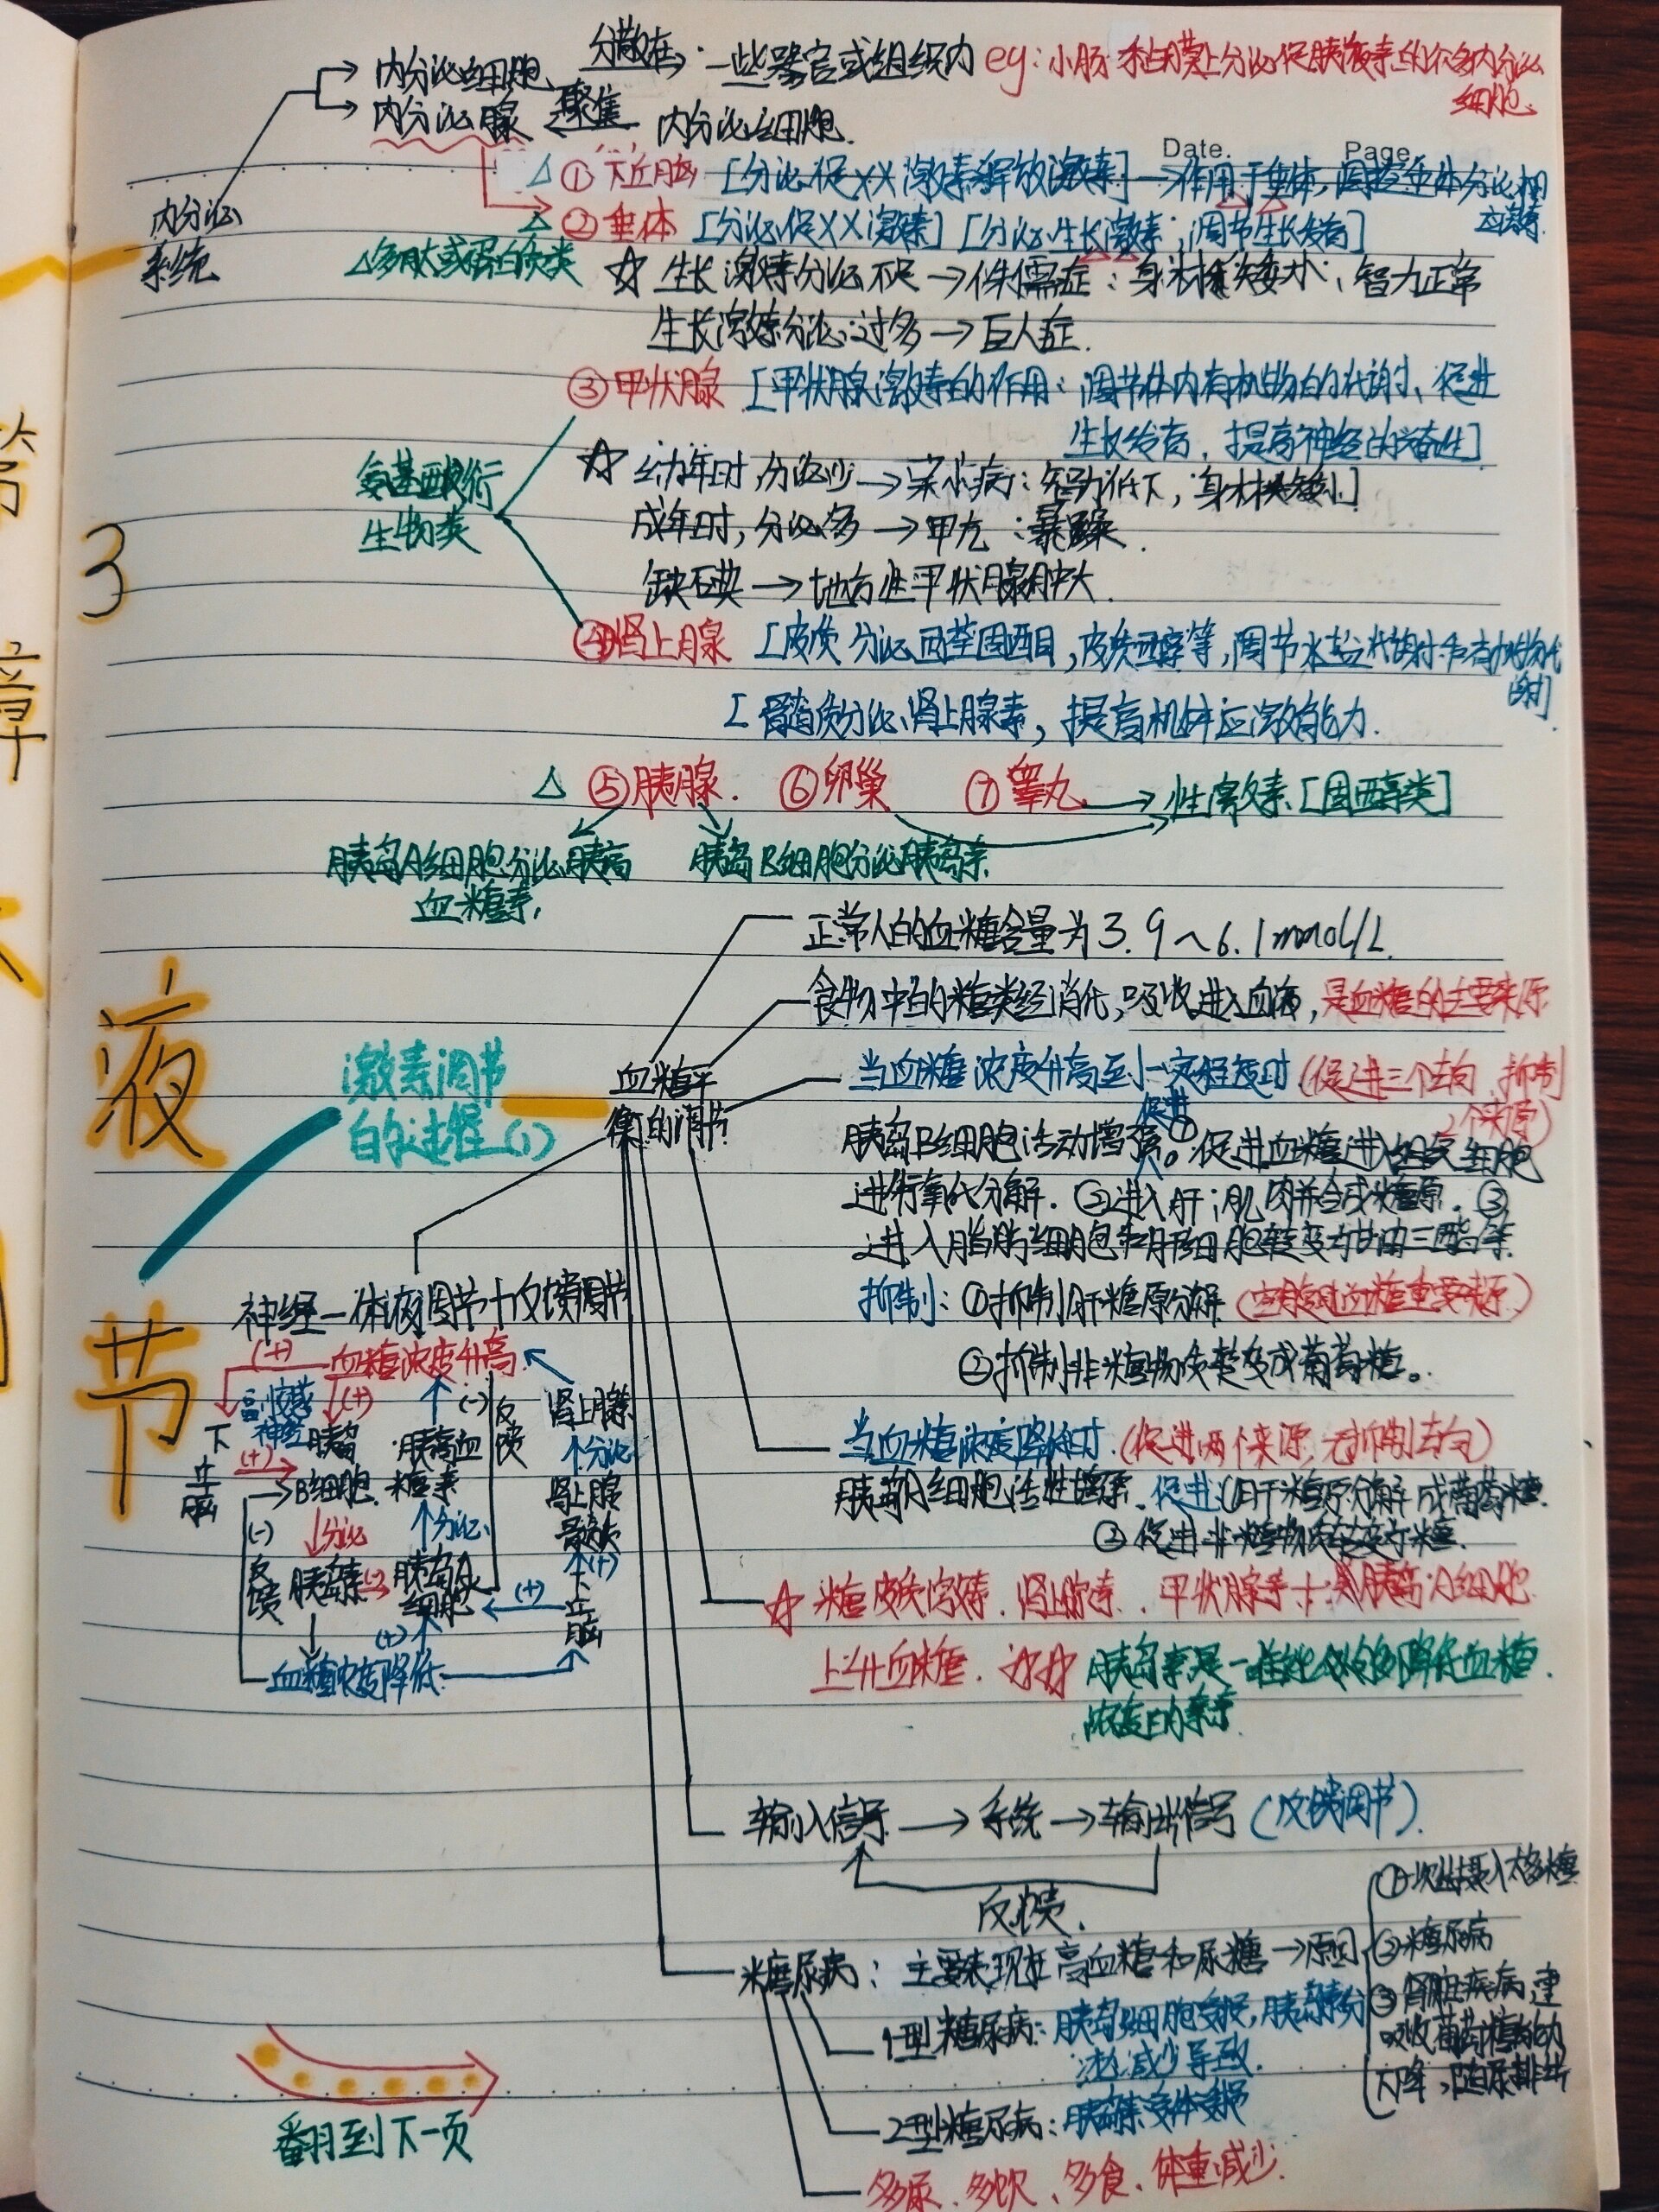 内分泌细胞 分散在:一些器官或组织内 eg:小肠黏膜上分泌促胰液素的众多内分泌
细胞.
内分泌腺 聚集 内分泌细胞.
Date. Page
内分泌
系统
△①下丘脑 [分泌促XX激素释放激素]→作用于垂体,调控垂体分泌相
应激素.
△②垂体 [分泌促XX激素][分泌生长激素;调节生长发育]
△多肽或蛋白质类
☆ 生长激素分泌不足→侏儒症:身材矮小,智力正常
生长激素分泌过多→巨人症.
③甲状腺 [甲状腺激素的作用:调节体内有机物的代谢、促进
生长发育,提高神经的兴奋性]
氨基酸衍
生物类
☆ 幼年时,分泌少→呆小病:智力低下,身材矮小]
成年时,分泌多→甲亢:暴躁.
缺碘→地方性甲状腺肿大.
④肾上腺 [皮质分泌醛固酮,皮质醇等,调节水盐代谢和有机物代
谢]
[髓质分泌肾上腺素,提高机体应激能力.
△ ⑤胰腺. ⑥卵巢 ⑦睾丸→性激素[固醇类]
胰岛A细胞分泌胰高
血糖素,
胰岛B细胞分泌胰岛素.
正常人的血糖含量为3.9~6.1mmol/L.
食物中的糖类经消化,吸收进入血液,是血糖的主要来源
第3章
体液
调节
激素调节
的过程(1)
血糖平
衡的调节
当血糖浓度升高至一定程度时(促进三个去向,抑制
2个来源)
促进
胰岛B细胞活动增强。①促进血糖进入组织细胞
进行氧化分解.②进入肝,肌肉并合成糖原.③
进入脂肪细胞和肝细胞转变为甘油三酯等.
抑制:①抑制肝糖原分解(空腹时血糖重要来源)
②抑制非糖物质转变成葡萄糖。
当血糖浓度降低时.(促进两个来源,无抑制去向)
胰岛A细胞活性增高.促进①肝糖原分解成葡萄糖.
②促进非糖物质转变为糖.
☆ 糖皮质激素.肾上腺素.甲状腺素
上升血糖. ☆☆ 胰岛素是唯一能够降低血糖
浓度的激素.
神经—体液调节+反馈调节
(+) 血糖浓度升高
下丘脑
副交感
神经
(+)
(+)
胰岛
B细胞.
胰高血
糖素
(-)反馈
肾上腺素
个分泌
肾上腺
髓质
(+)
下丘脑
↑分泌
↓分泌
(-)
反馈
胰岛素
(-)
胰岛A
细胞
(+)
(+)
血糖浓度降低
输入信号→系统→输出信号(反馈调节).
反馈.
糖尿病:主要表现在高血糖和尿糖→原因
①一次性摄入太多糖
②糖尿病
③肾脏疾病,重
吸收葡萄糖能力
下降,随尿排出
1型糖尿病:胰岛B细胞受损,胰岛素分
泌减少导致.
2型糖尿病:胰岛素受体受损
多尿、多饮、多食、体重减少.
翻到下一页